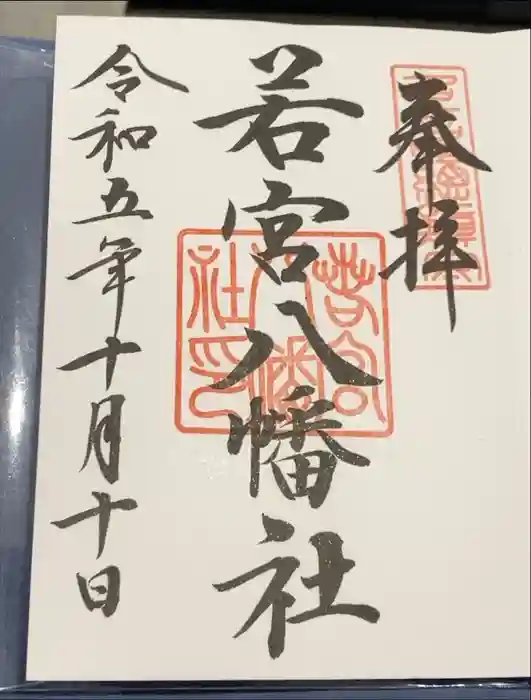 奉拝
若宮八幡社
若宮八幡社印
令和五年十月十日